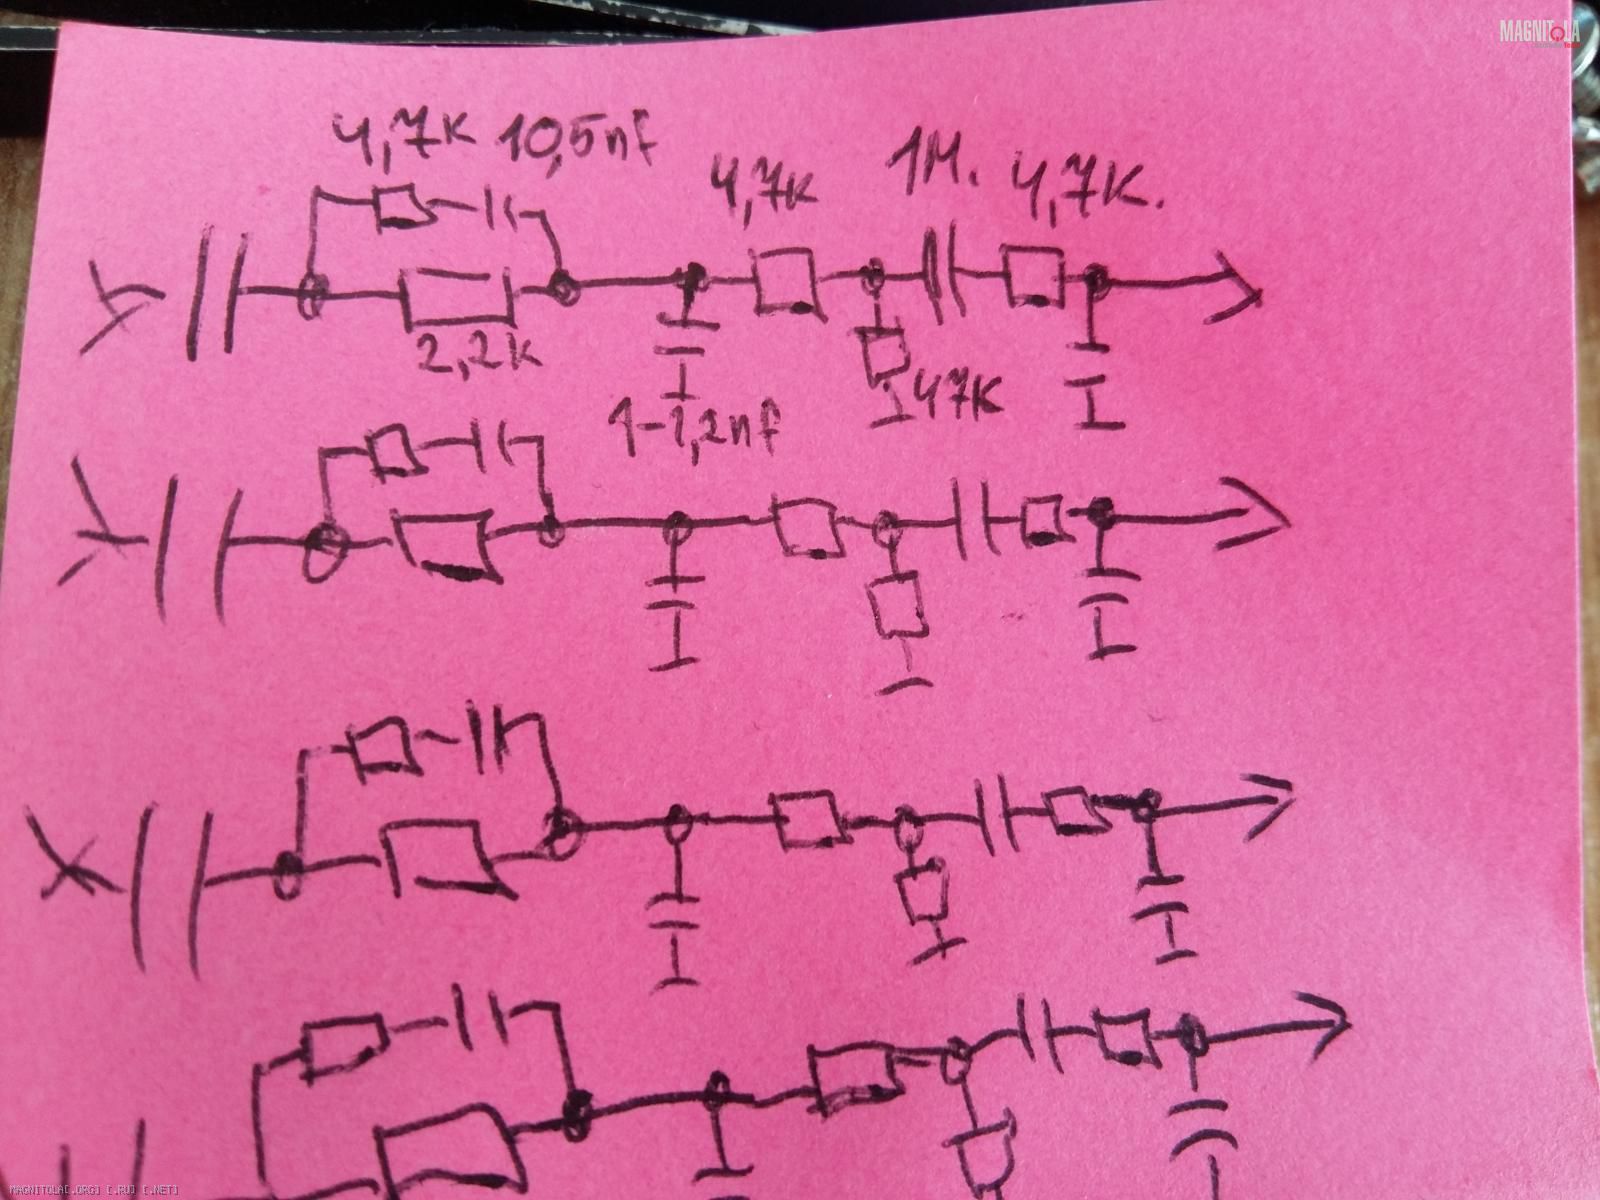 MAGNITOLA
4,7к 10,5nf
4,7к
1М. 4,7К.
2,2к
47к
1-1,2nf
MAGNITOLA[.ORG] [.RU] [.NET]